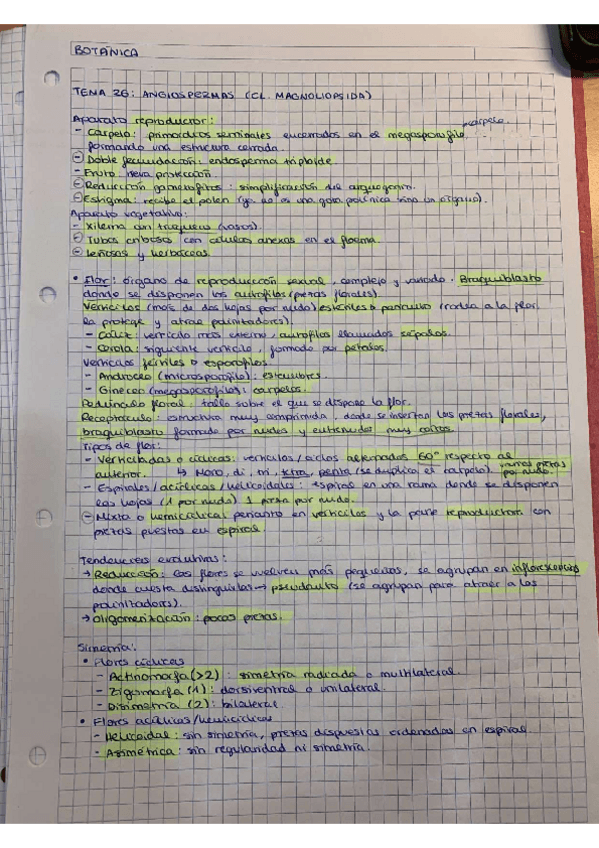 BOTÁNICA
TEMA 26: ANGIOSPERMAS (CL. MAGNOLIOPSIDA)
Aparato reproductor:
carpelo.
- Carpelo: primordios seminales encerrados en el megasporofilo
formando una estructura cerrada.
- Doble fecundación: endosperma triploide.
- Fruto: lleva protección.
- Reducción gametofitos: simplificación del arquegonio.
- Estigma: recibe el polen (ya no es una gota polínica sino un órgano).
Aparato vegetativo:
- Xilema con tráqueas (vasos).
- Tubos cribosos con células anexas en el floema.
- Leñosas y herbáceas.
• Flor: órgano de reproducción sexual, complejo y variado. Braquiblasto
donde se disponen los antofilos (piezas florales).
Verticilos (más de dos hojas por nudo) estériles o periantio (rodea a la flor,
la protege y atrae polinizadores).
- Cáliz: verticilo más externo, antofilos llamados sépalos.
- Corola: siguiente verticilo, formado por pétalos.
Verticilos fértiles o esporofilos:
- Androceo (microsporofilo): estambres.
- Gineceo (megasporofilo): carpelos.
Pedúnculo floral: tallo sobre el que se dispone la flor.
Receptáculo: estructura muy comprimida, donde se insertan las piezas florales,
braquiblasto formado por nudos y entrenudos muy cortos.
Tipos de flor:
- Verticiladas o cíclicas: verticilos/ciclos alternados 60° respecto al
anterior. ↳ Mono, di, tri, tetra, penta (se duplica el carpelo). varias piezas por nudo.
- Espirales/acíclicas/helicoidales: espiras en una rama donde se disponen
las hojas (1 por nudo) 1 pieza por nudo.
- Mixta o hemicíclica: periantio en verticilos y la parte reproductora con
piezas puestas en espiral.
Tendencias evolutivas:
→ Reducción: las flores se vuelven más pequeñas, se agrupan en inflorescencias
donde cuesta distinguirlas → pseudanto (se agrupan para atraer a los
polinizadores).
→ Oligomerización: pocas piezas.
Simetría:
• Flores cíclicas
- Actinomorfa (>2): simetría radiada o multilateral.
- Zigomorfa (1): dorsiventral o unilateral.
- Disimetría (2): bilateral.
• Flores acíclicas/hemicíclicas
- Helicoidal: sin simetría, piezas dispuestas ordenadas en espiral.
- Asimétrica: sin regularidad ni simetría.